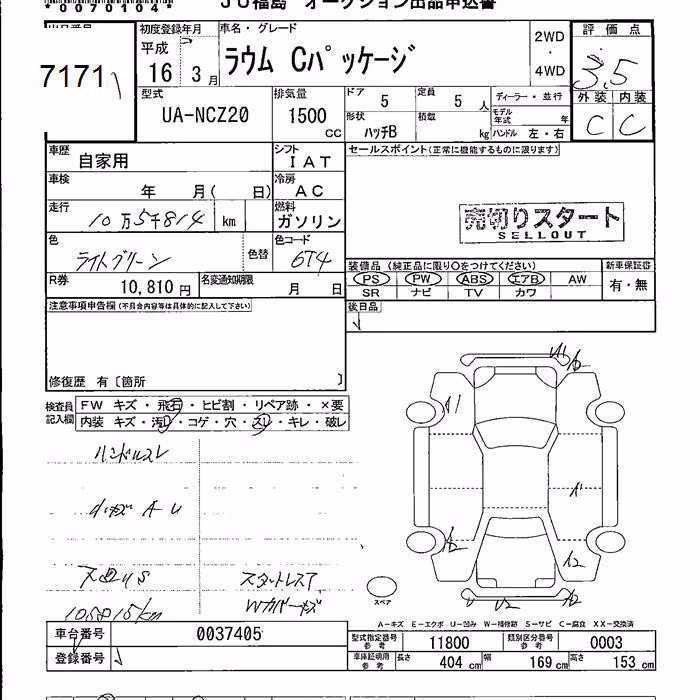 *0070104*
JU福島 オークション出品申込書
出品番号
7171
初度登録年月
平成
16年 3月
車名・グレード
ラウム Cパッケージ
2WD
・
4WD
評価点
3.5
外装 内装
C C
型式
UA-NCZ20
排気量
1500
CC
ドア 5
定員 5人
ディーラー・並行
形状
ハッチB
積載
kg
モデル年式 年
ハンドル 左・右
車歴
自家用
シフト
IAT
車検
年 月( 日)
冷房
AC
走行
10万5千814 km
燃料
ガソリン
色
ライトグリーン
色替
色コード
6T4
R券
10,810円
名変通知期限
月 日
セールスポイント(正常に機能するものに限ります)
売切りスタート
SELLOUT
装備品(純正品に限り○をつけてください)
新車保証書
PS PW ABS エアB AW
SR ナビ TV カワ
有・無
注意事項申告欄(不具合内容等は具体的に記入して下さい)
後日品
修復歴 有〔箇所 〕
検査員
記入欄
FW キズ・飛石・ヒビ割・リペア跡・×要
内装 キズ・汚レ・コゲ・穴・スレ・キレ・破レ
ハンドルスレ
小キズ A U
スタットレスア
105815km
Wカバーキズ
A1
A2
A2
A2
U2
スペア
A-キズ E-エクボ U-凹み W-補修跡 S-サビ C-腐食 XX-交換済
車台番号
0037405
登録番号
型式指定番号
参考
11800
類別区分番号
参考
0003
車庫証明用
参考
長さ 404cm 幅 169cm 高さ 153cm